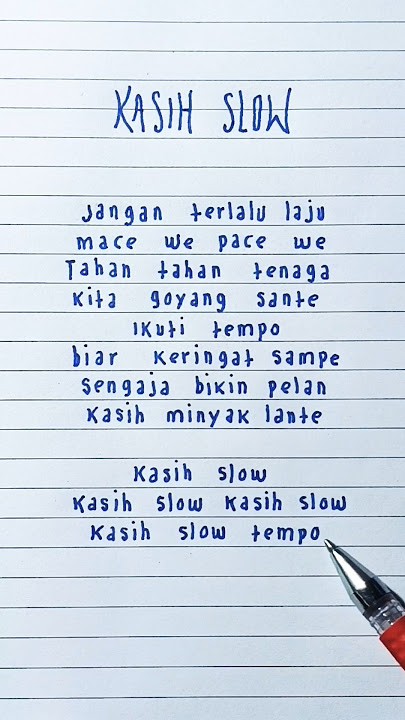 KASIH SLOW
Jangan terlalu laju
mace we pace we
Tahan tahan tenaga
Kita goyang sante
Ikuti tempo
biar keringat sampe
Sengaja bikin pelan
Kasih minyak lante
Kasih slow
Kasih slow Kasih slow
Kasih slow tempo